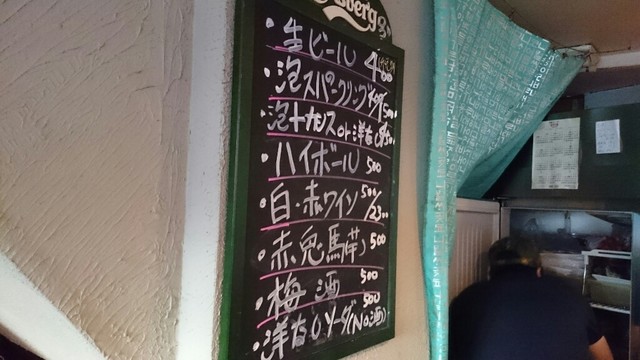 sberg
・生ビール 400
・泡スパークリング 400/1500
・泡+カシス or 洋なし 450
・ハイボール 500
・白・赤ワイン 500/2300
・赤兎馬(芋) 500
・梅酒 500
・洋なしソーダ(No酒) 500